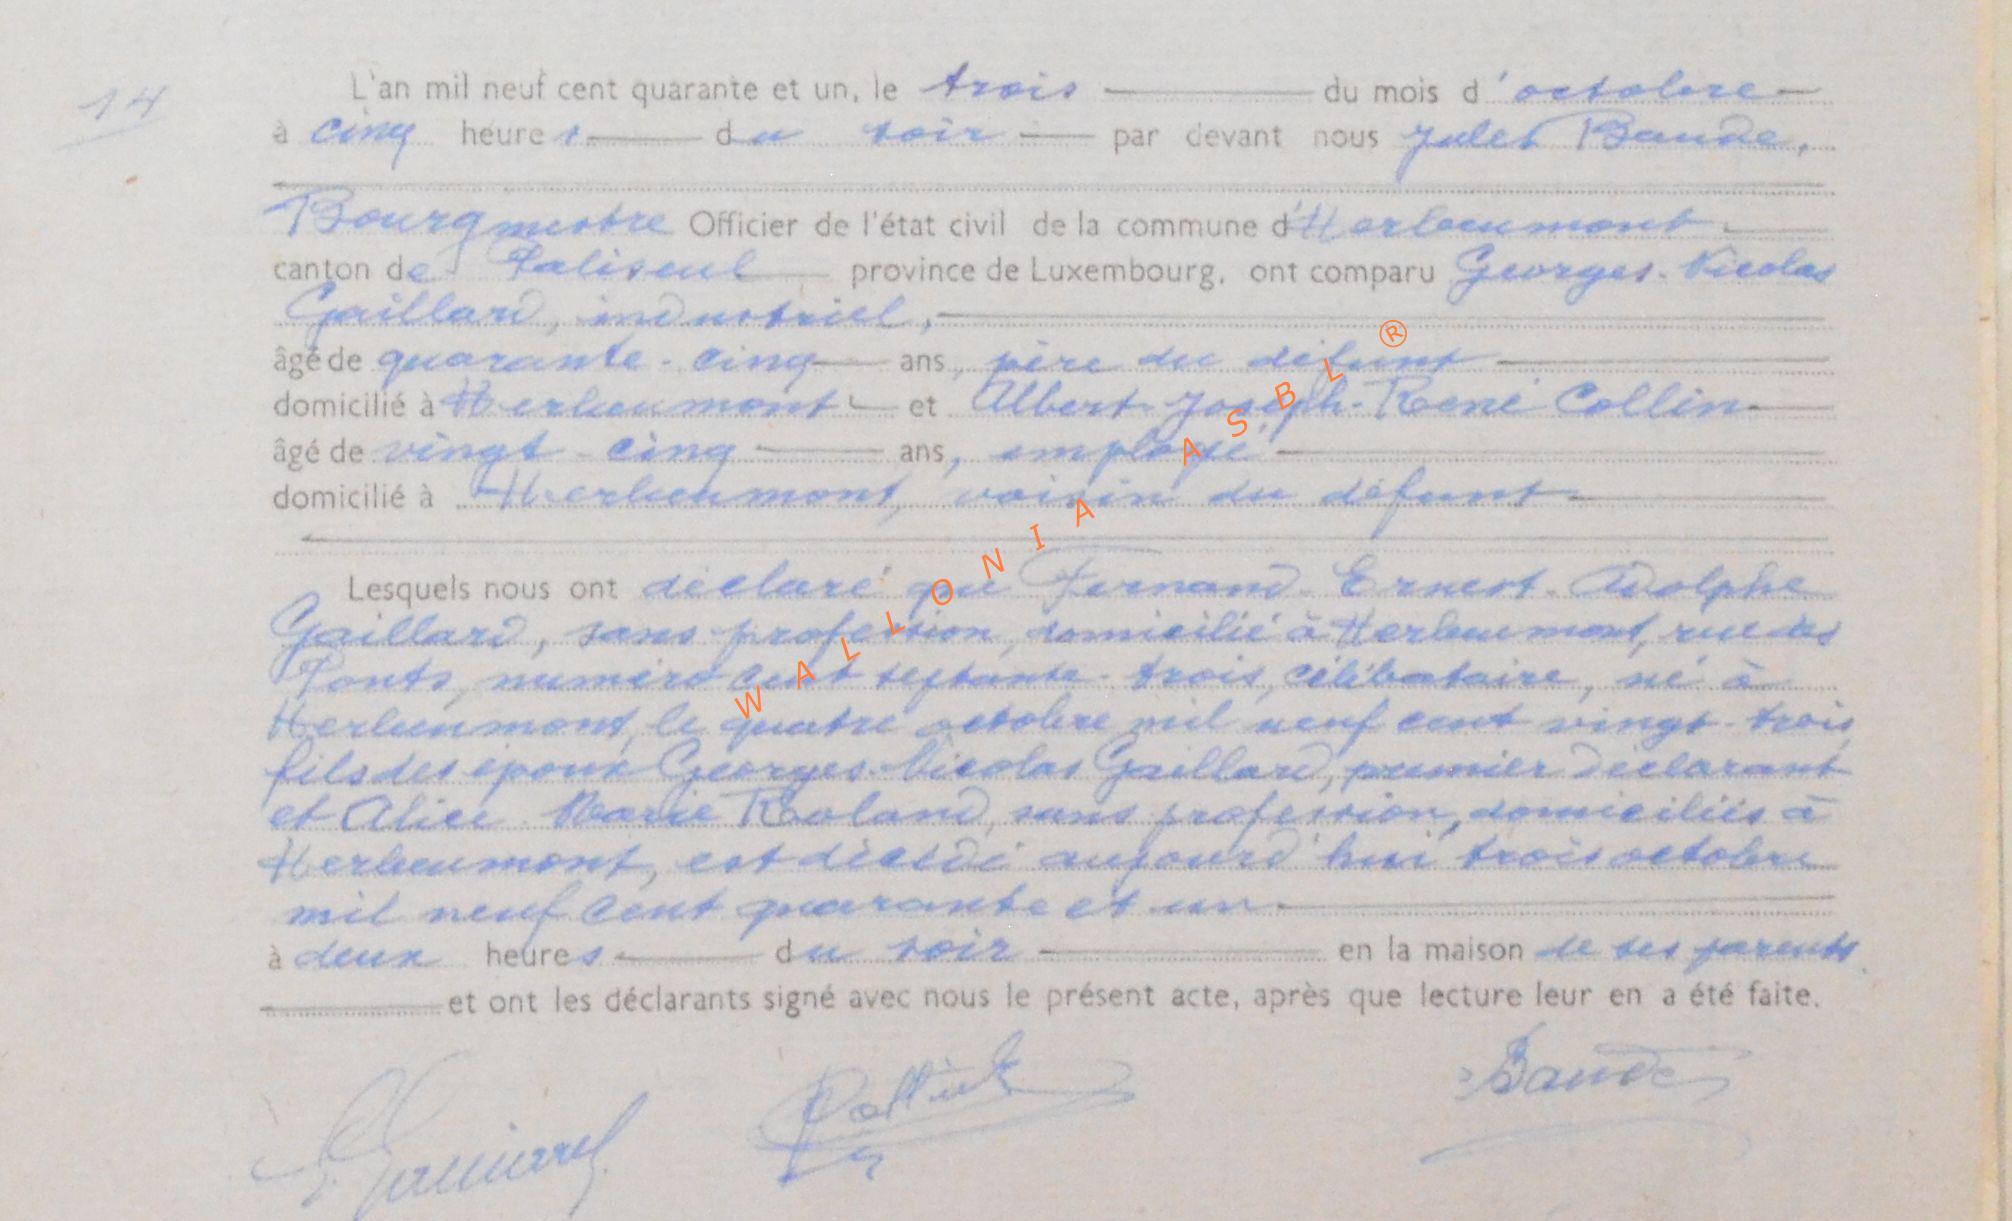 14
L'an mil neuf cent quarante et un, le trois du mois d'octobre
à cinq heures du soir par devant nous Jules Baude,
Bourgmestre Officier de l'état civil de la commune d'Herbeumont
canton de Paliseul province de Luxembourg, ont comparu Georges-Nicolas
Gaillard, industriel,
âgé de quarante-cinq ans, père du défunt
domicilié à Herbeumont et Albert-Joseph-René Collin
âgé de vingt-cinq ans, employé
domicilié à Herbeumont, voisin du défunt
Lesquels nous ont déclaré que Fernand-Ernest-Adolphe
Gaillard, sans profession, domicilié à Herbeumont, rue des
Ponts, numéro cent septante-trois, célibataire, né à
Herbeumont, le quatre octobre mil neuf cent vingt-trois,
fils des époux Georges-Nicolas Gaillard, premier déclarant
et Alice-Marie Roland, sans profession, domiciliés à
Herbeumont, est décédé aujourd'hui trois octobre
mil neuf cent quarante et un
à deux heures du soir en la maison de ses parents
et ont les déclarants signé avec nous le présent acte, après que lecture leur en a été faite.
Baude
WALLONIA ASBL ®